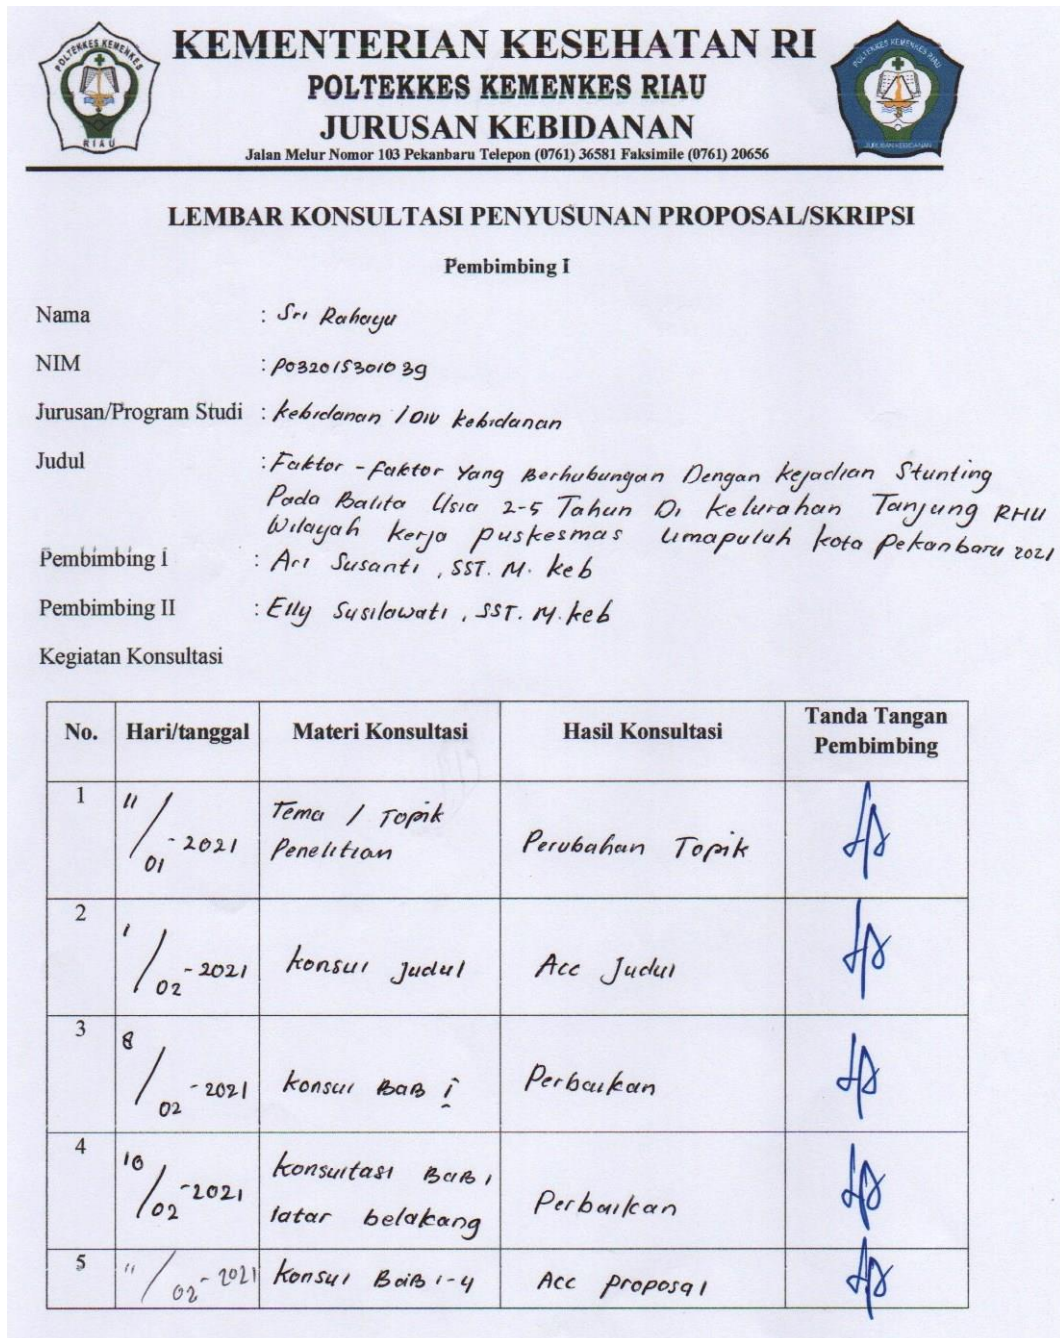 POLTEKKES KEMENKES
RIAU
KEMENTERIAN KESEHATAN RI
POLTEKKES KEMENKES RIAU
JURUSAN KEBIDANAN
Jalan Melur Nomor 103 Pekanbaru Telepon (0761) 36581 Faksimile (0761) 20656
POLTEKKES KEMENKES RIAU
JURUSAN KEBIDANAN
LEMBAR KONSULTASI PENYUSUNAN PROPOSAL/SKRIPSI
Pembimbing I
Nama : Sri Rahayu
NIM : P03201530103g
Jurusan/Program Studi : kebidanan / DIV kebidanan
Judul : Faktor - faktor Yang Berhubungan Dengan kejadian Stunting
Pada Balita Usia 2-5 Tahun Di kelurahan Tanjung RHU
Wilayah kerja puskesmas Limapuluh kota Pekanbaru 2021
Pembimbing I : Ari Susanti, SST. M. keb
Pembimbing II : Elly Susilawati, SST. M. keb
Kegiatan Konsultasi
No. Hari/tanggal Materi Konsultasi Hasil Konsultasi Tanda Tangan Pembimbing
1 11/01-2021 Tema / Topik Penelitian Perubahan Topik
2 1/02-2021 konsul judul Acc Judul
3 8/02-2021 konsul BAB I Perbaikan
4 10/02-2021 konsultasi BAB 1 latar belakang Perbaikan
5 11/02-2021 konsul BAB 1-4 Acc proposal